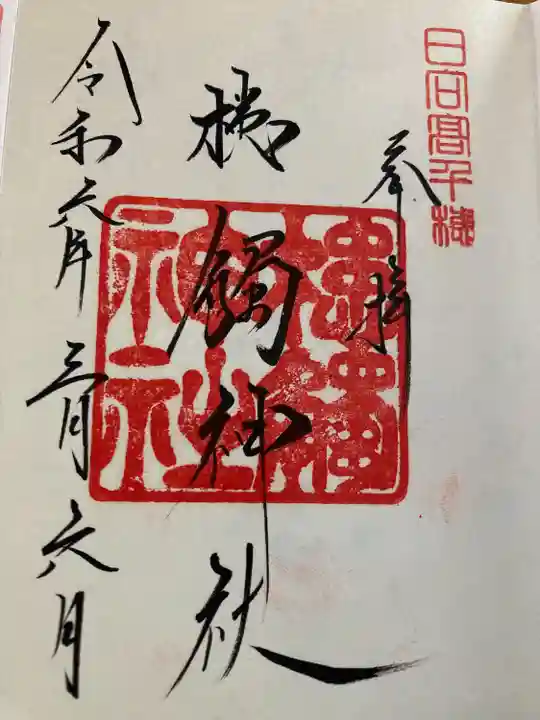 日向高千穂
奉拝
槵觸神社
令和六年三月六日